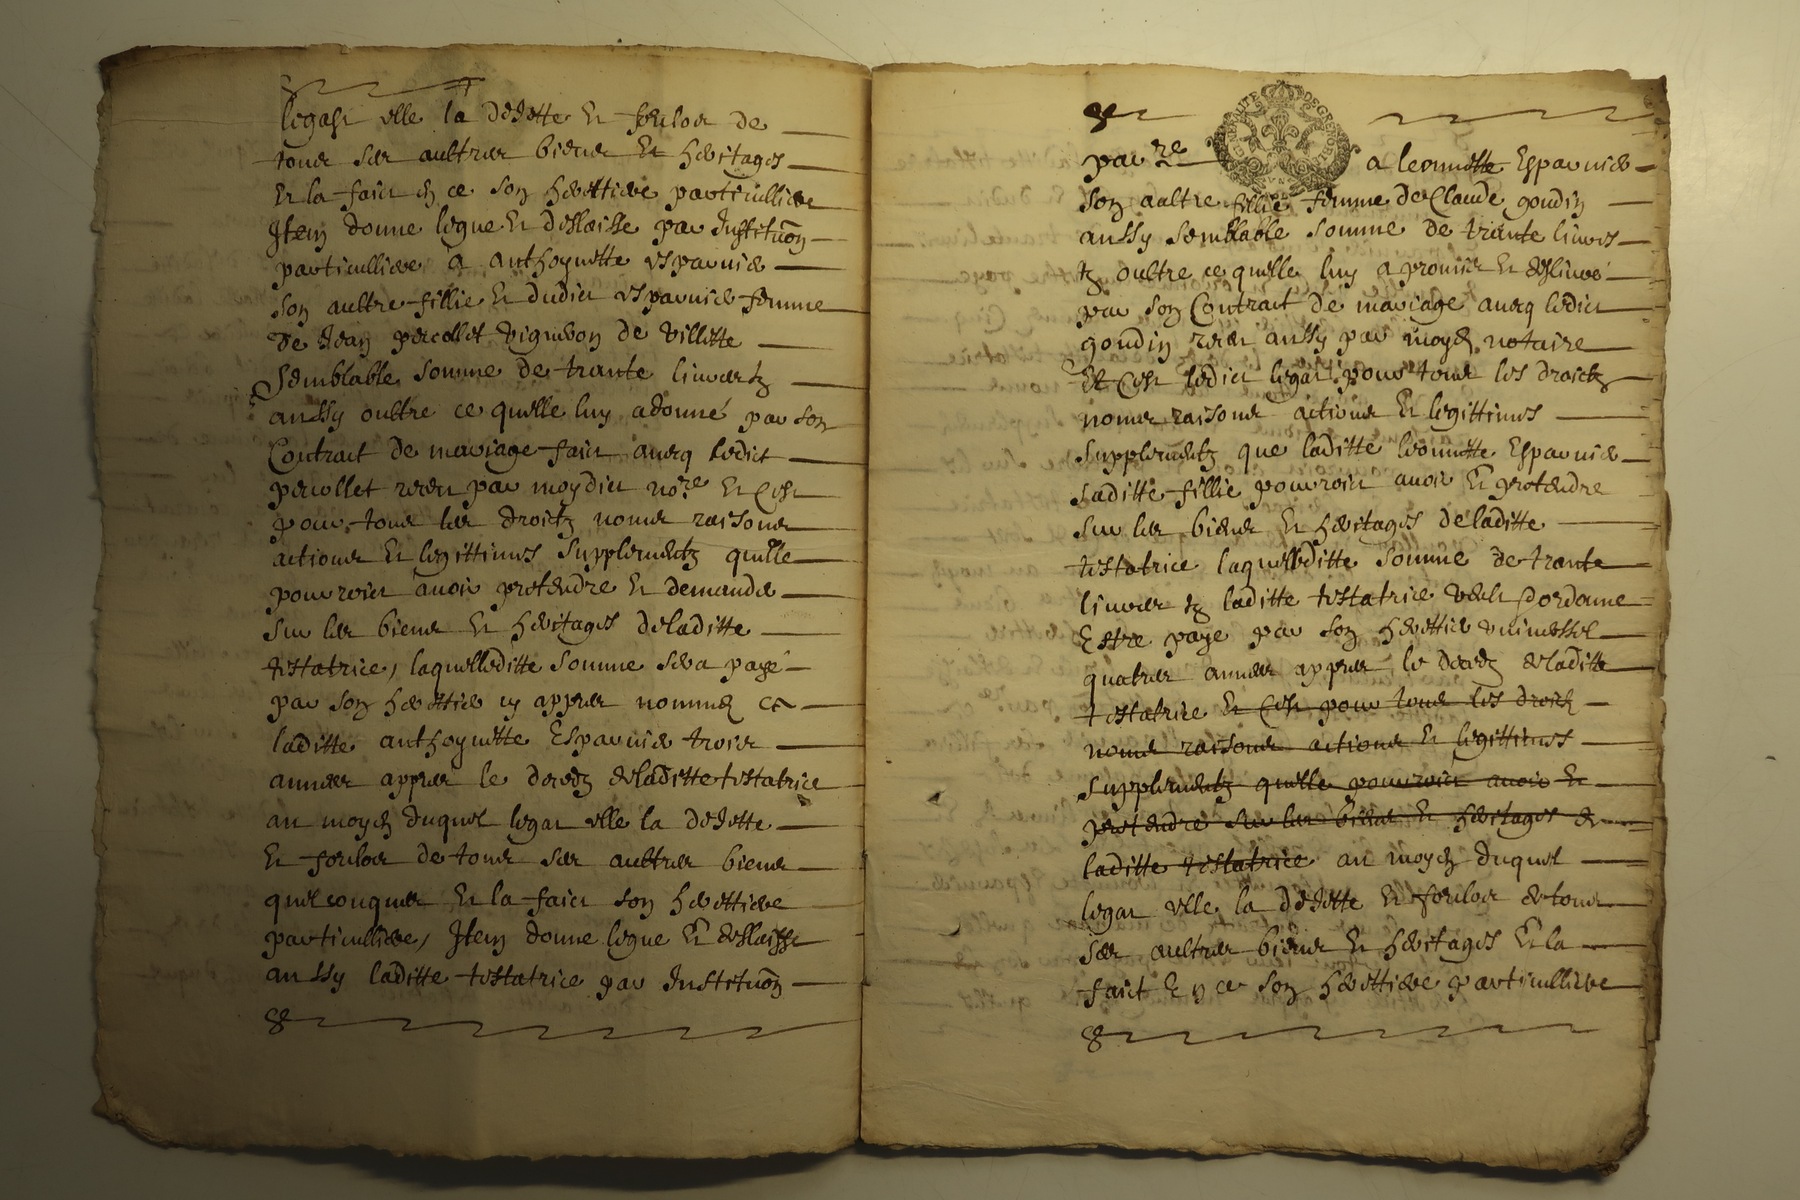 legatz elle la dejette et forclos de
tous ses aultres biens et heritages
et la faict en ce son herettiere particulliere
Item donne legue et deslaisse par Institution
particulliere a anthoynette esparvier
son aultre fillie et dudict esparvier femme
de Jean percollet vigneron de villette
semblable somme de trante livres tz
aussy oultre ce quelle luy a donné par son
Contract de mariage faict avecq ledict
percollet receu par moydict no.re et C'est
pour tous les droictz noms raisons
actions et legittimes supplementz quelle
pourroict avoir pretendre et demander
sur les biens et heritages de laditte
testatrice, laquelleditte somme sera payé
par son herettier cy appres nommé a
laditte anthoynette Esparvier trois
annees appres le decedz de laditte testatrice
au moyen duquel legat elle la dejette
et forclos de tous ses aultres biens
quelconques et la faict son herettiere
particulliere, Item donne legue et deslaisse
aussy laditte testatrice par Institution
par.re a leonnette Esparvier
son aultre fillie femme de Claude goudin
aussy semblable somme de trante livres
tz oultre ce quelle luy a promis et deslivré
par son Contract de mariage avecq ledict
goudin receu aussy par moyd. notaire
Et C'est ledict legat pour tous les droictz
noms raisons actions et legittimes
supplementz que laditte leonnette Esparvier
saditte fillie pourroict avoir Et pretendre
sur les biens et heritages de laditte
testatrice laquelleditte somme de trante
livres tz laditte testatrice veult Dordonne
Estre paye par son herettier universel
quatres annees appres le decedz de laditte
testatrice et C'est pour tous les droictz
noms raisons actions et legittimes
supplementz quelle pourroict avoir et
pretendre sur les biens et heritages de
laditte testatrice au moyen duquel
legat elle la dejette et forclos de tous
ses aultres biens et heritages Et la
faict En ce son herettiere particulliere